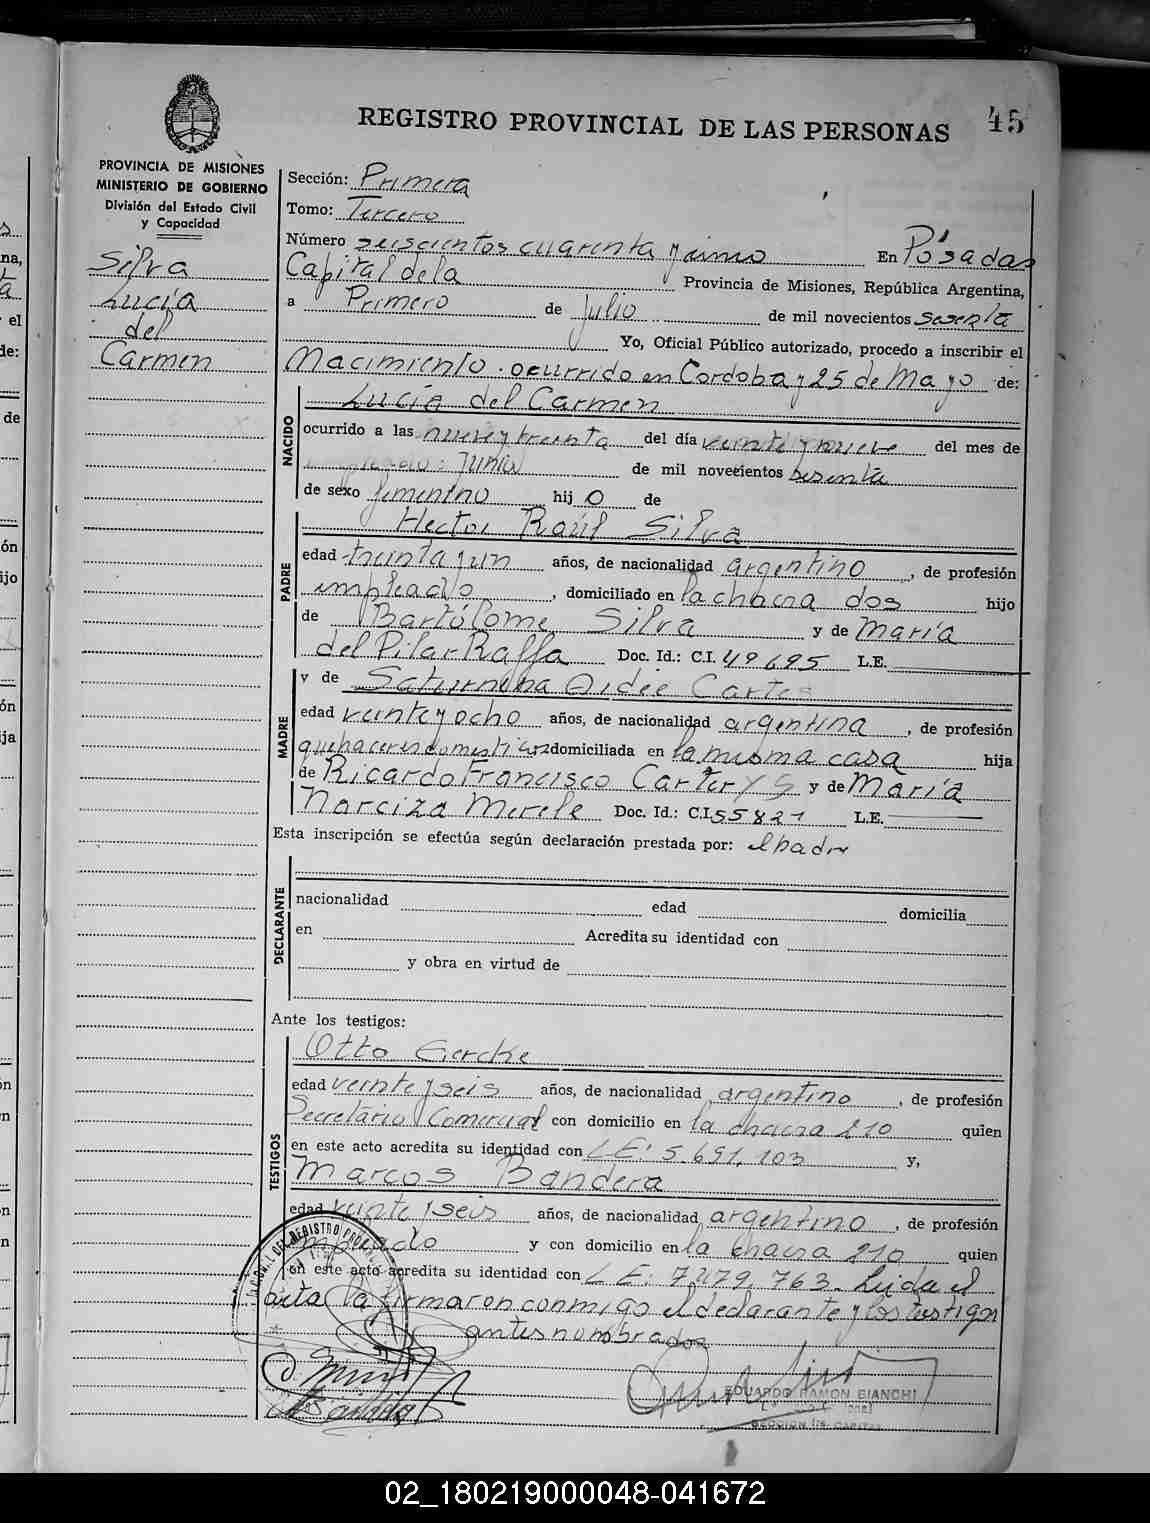 REGISTRO PROVINCIAL DE LAS PERSONAS
45
PROVINCIA DE MISIONES
MINISTERIO DE GOBIERNO
División del Estado Civil
y Capacidad
Silva
Lucía
del
Carmen
Sección: Primera
Tomo: Tercero
Número seiscientos cuarenta y uno En Posadas
Capital de la Provincia de Misiones, República Argentina,
a Primero de Julio de mil novecientos sesenta
Yo, Oficial Público autorizado, procedo a inscribir el
Nacimiento ocurrido en Cordoba y 25 de Mayo de:
NACIDO
Lucía del Carmen
ocurrido a las nueve y treinta del día veinte y nueve del mes de
Junio de mil novecientos sesenta
de sexo femenino hij o de
PADRE
Hector Raúl Silva
edad treinta y un años, de nacionalidad argentino, de profesión
empleado, domiciliado en la chacra dos hijo
de Bartólome Silva y de María
del Pilar Raffa Doc. Id.: C.I. 49695 L.E.
MADRE
y de Saturnina Aidée
edad veinte y ocho años, de nacionalidad argentina, de profesión
quehaceres domesticos domiciliada en la misma casa hija
de Ricardo Francisco y de María
Narciza Merele Doc. Id.: C.I. 55821 L.E.
Esta inscripción se efectúa según declaración prestada por: el padre
DECLARANTE
nacionalidad edad domicilia
en Acredita su identidad con
y obra en virtud de
Ante los testigos:
TESTIGOS
Otto Gercke
edad veinte y seis años, de nacionalidad argentino, de profesión
Secretário Comercial con domicilio en la chacra 210 quien
en este acto acredita su identidad con LE: 5.651.103 y,
Marcos Bandera
edad veinte y seis años, de nacionalidad argentino, de profesión
empleado y con domicilio en la chacra 210 quien
en este acto acredita su identidad con L E: 7.479.763. Leida el
acta la firmaron conmigo el declarante y los testigos
antes nombrados
EDUARDO RAMON BIANCHI
SECCION 1ra. CAPITAL
02_180219000048-041672